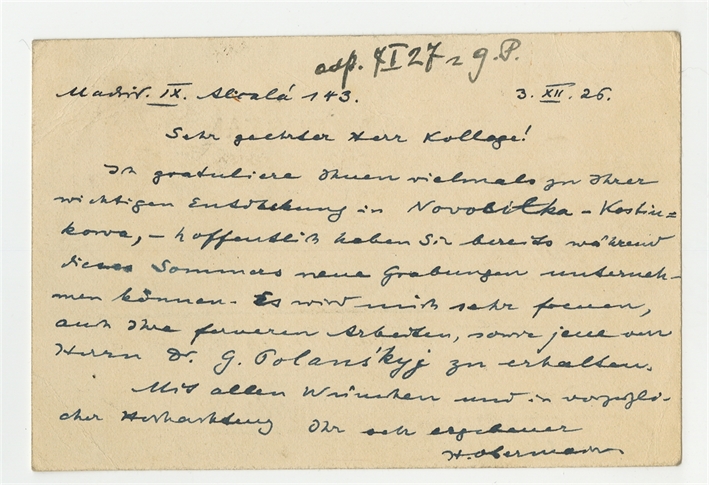 odp. 7 I 27 z g. P.
Madrid. IX. Alcalá 143. 3. XII. 26.
Sehr geehrter Herr Kollege!
Ich gratuliere Ihnen vielmals zu Ihrer
wichtigen Entdeckung in Novobilka-Kostin=
kowa, – hoffentlich haben Sie bereits während
dieses Sommers neue Grabungen unterneh-
men können. Es wird mich sehr freuen,
auch Ihre ferneren Arbeiten, sowie jene von
Herrn Dr. G. Polanśkyj zu erhalten.
Mit allen Wünschen und in vorzügli-
cher Hochachtung Ihr sehr ergebener
H. Obermaier